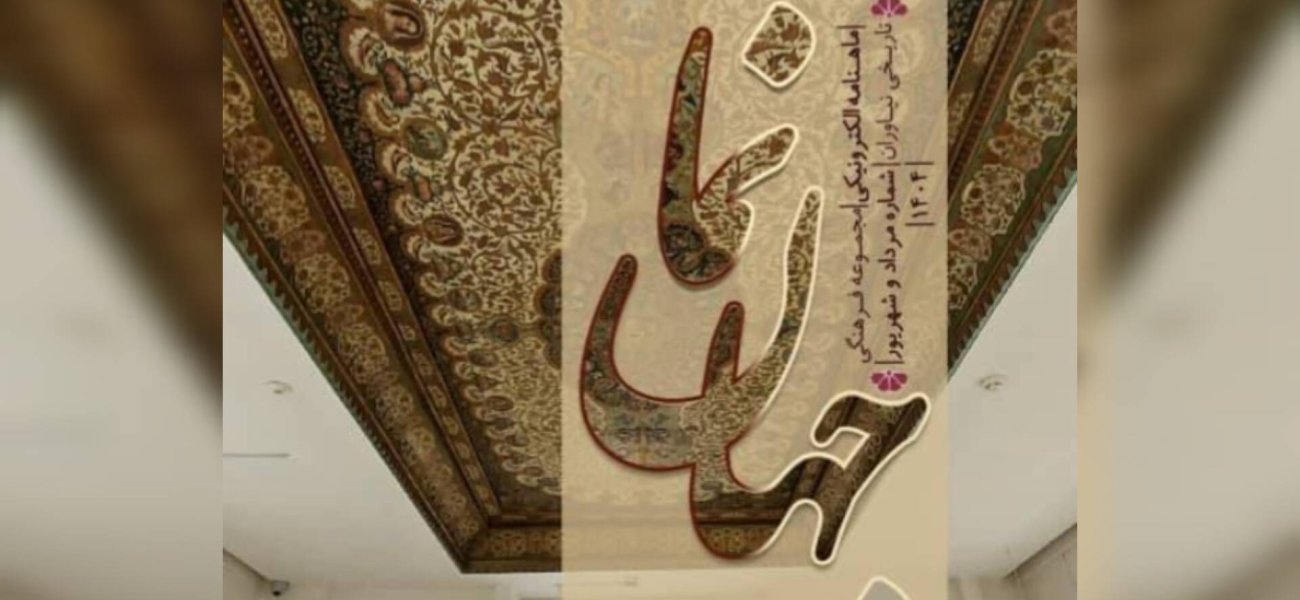 جهان نما
|ماهنامه الکترونیکی|مجموعه فرهنگی
تاریخی نیاوران|شماره مرداد و شهریور|
|۱۴۰۴|